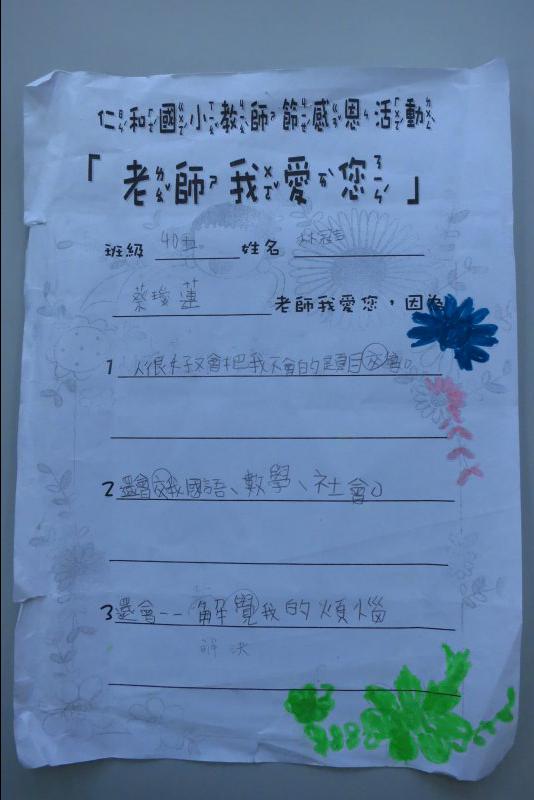 仁和國小教師節感恩活動
「老師我愛您」
班級 405 姓名 林冠言
蔡璇蓮 老師我愛您，因為
1 人很好又會把我不會的題目交會。
2 還會交我國語、數學、社會。
3 還會--解覺我的煩惱
解決